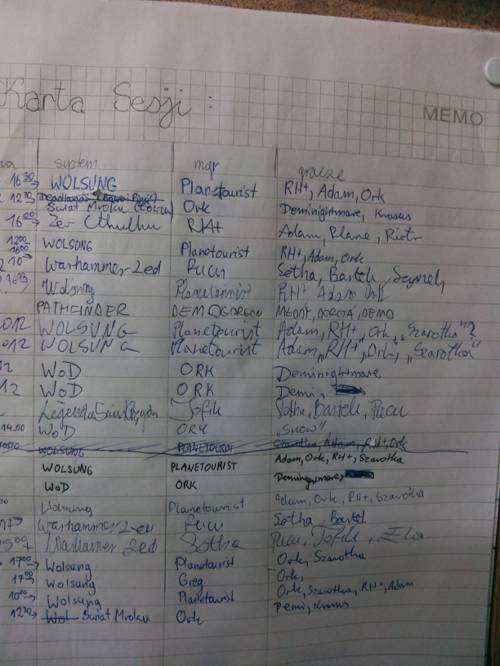 Karta Sesji :
MEMO
system mgr gracze
16 30 WOLSUNG Planetourist RH+, Adam, Ork
12 30 Świat Mroku Ork Deminightmare, Krasus
16 00 Zew Cthulhu RH+ Adam, Plane, Piotr
12 00 16 00 WOLSUNG Planetourist RH+, Adam, Ork
10 Warhammer 2ed Pucu Sotha, Bartek, Szymek
Wolsung RH+ Adam Ork
PATHFINDER DEMOGORGON MŁODY, DOROTA, DEMO
2012 WOLSUNG Planetourist Adam, RH+, Ork, "Szarotka"?
2012 WOLSUNG Planetourist Adam, "RH+", Ork, "Szarotka"
12 WoD ORK Deminightmare
12 WoD ORK Demi,
Sofik Sotha, Bartek, Pucu
14.00 WoD ORK "SNOW"
WOLSUNG PLANETOURIST Szarotka, Adam, RH+, Ork
WOLSUNG PLANETOURIST Adam, Ork, RH+, Szarotka
WoD ORK Deminightmare,
Wolsung Planetourist Adam, Ork, RH+, Szarotka
17 Warhammer 2ed Pucu Sotha, Bartek
Warhammer 2ed Sotha Pucu, Sofik, Ela
17 00 Wolsung Planetourist Ork, Szarotka
17 00 Wolsung Greg Ork,
10 30 Wolsung Planetourist Ork, Szarotka, RH+, Adam
12 30 Wol Świat Mroku Ork Demi, Krasus